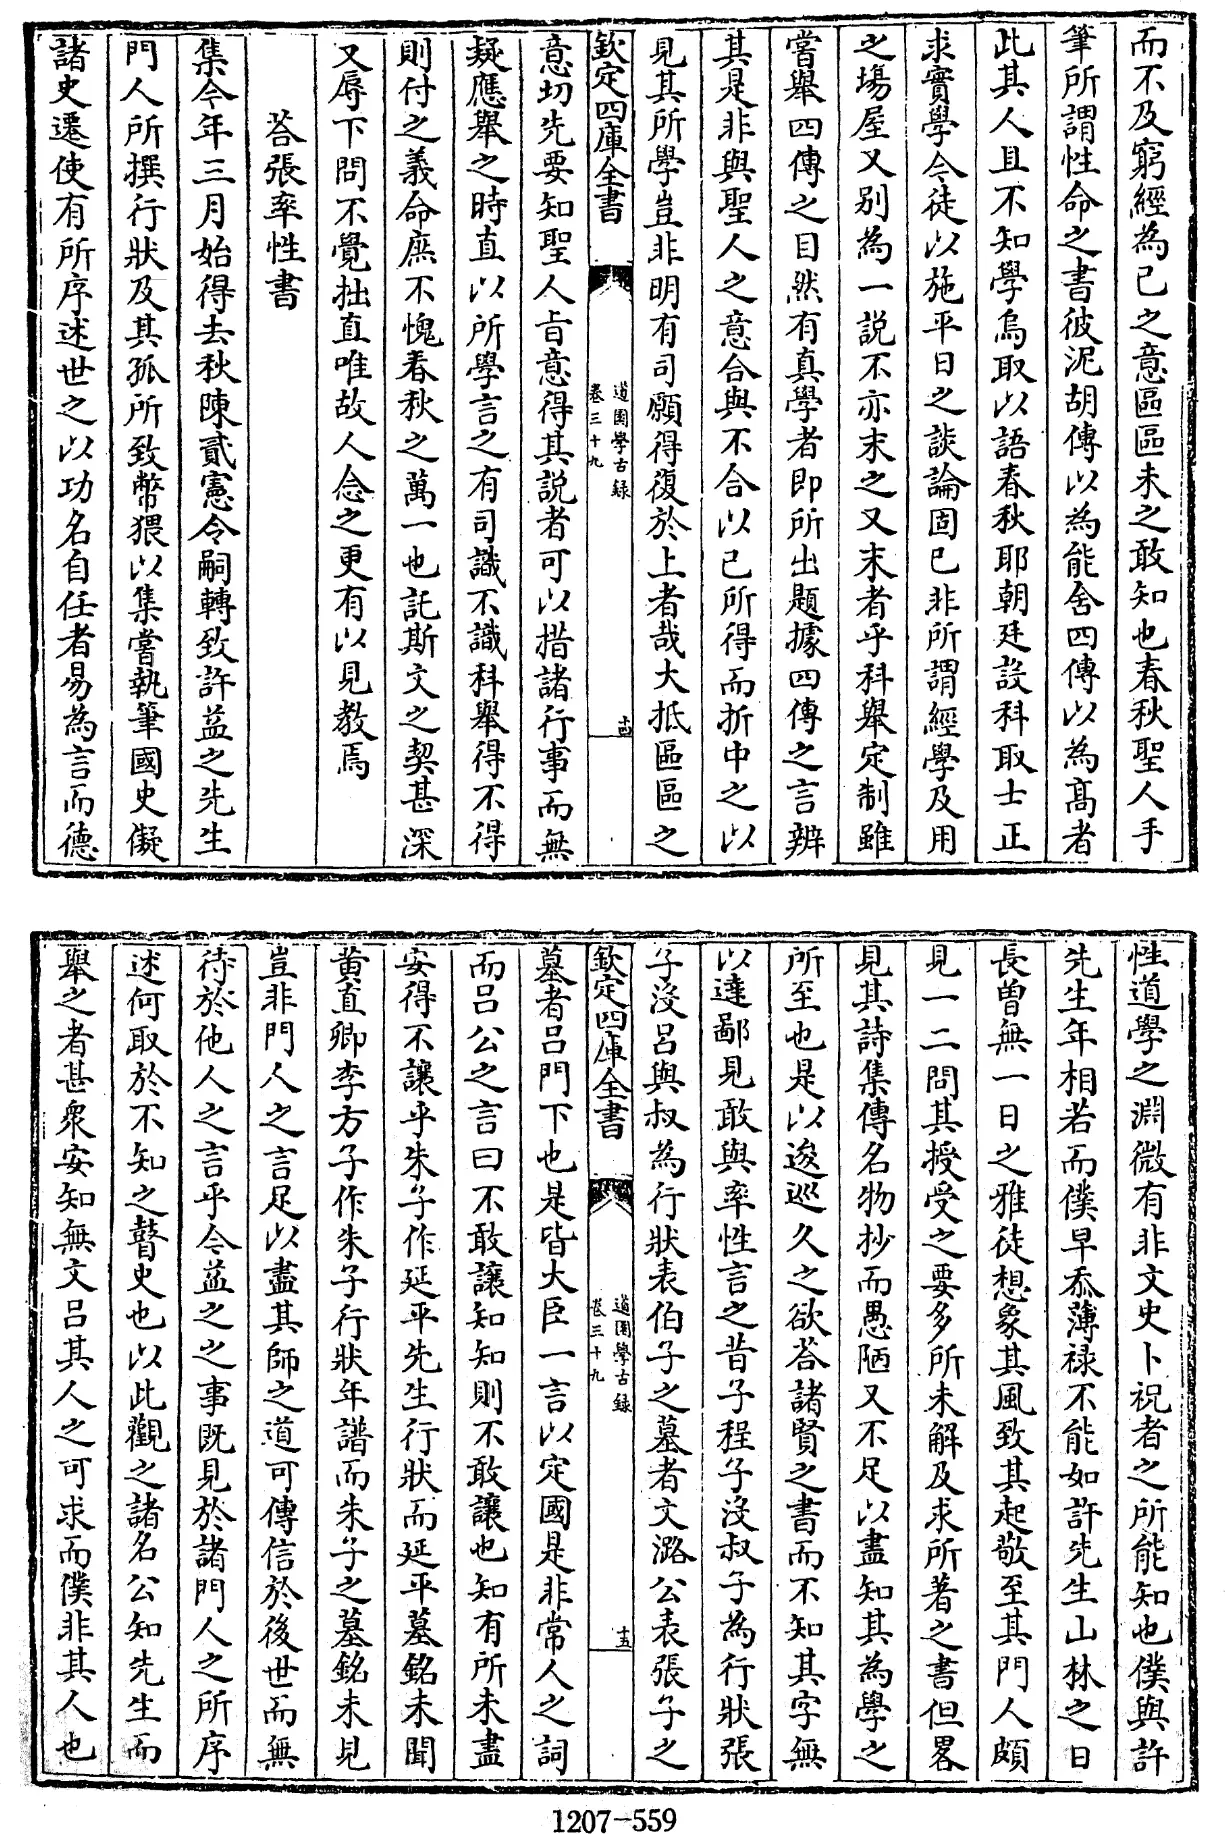 而不及窮經為己之意區區未之敢知也春秋聖人手
筆所謂性命之書彼泥胡傳以為能舍四傳以為髙者
此其人且不知學烏取以語春秋耶朝廷設科取士正
求實學令徒以施平日之談論固已非所謂經學及用
之場屋又别為一説不亦末之又末者乎科舉定制雖
嘗舉四傳之目然有真學者即所出題據四傳之言辨
其是非與聖人之意合與不合以已所得而折中之以
見其所學豈非明有司願得復於上者哉大抵區區之
欽定四庫全書
道園學古録
卷三十九
十四
意切先要知聖人旨意得其説者可以措諸行事而無
疑應舉之時直以所學言之有司識不識科舉得不得
則付之義命庶不愧春秋之萬一也託斯文之契甚深
又辱下問不覺拙直唯故人念之更有以見教焉
荅張率性書
集今年三月始得去秋陳貳憲令嗣轉致許益之先生
門人所撰行狀及其孤所致幣猥以集嘗執筆國史儗
諸史遷使有所序述世之以功名自任者易為言而德
性道學之淵微有非文史卜祝者之所能知也僕與許
先生年相若而僕早忝薄禄不能如許先生山林之日
長曽無一日之雅徒想象其風致其起敬至其門人頗
見一二問其授受之要多所未解及求所著之書但畧
見其詩集傳名物抄而愚陋又不足以盡知其為學之
所至也是以逡巡久之欲荅諸賢之書而不知其字無
以達鄙見敢與率性言之昔子程子没叔子為行狀張
子沒吕與叔為行狀表伯子之墓者文潞公表張子之
欽定四庫全書
道園學古録
卷三十九
十五
墓者吕門下也是皆大臣一言以定國是非常人之詞
而吕公之言曰不敢讓知知則不敢讓也知有所未盡
安得不讓乎朱子作延平先生行狀而延平墓銘未聞
黄直卿李方子作朱子行狀年譜而朱子之墓銘未見
豈非門人之言足以盡其師之道可傳信於後世而無
待於他人之言乎今益之之事既見於諸門人之所序
述何取於不知之瞽史也以此觀之諸名公知先生而
舉之者甚衆安知無文吕其人之可求而僕非其人也
1207-559